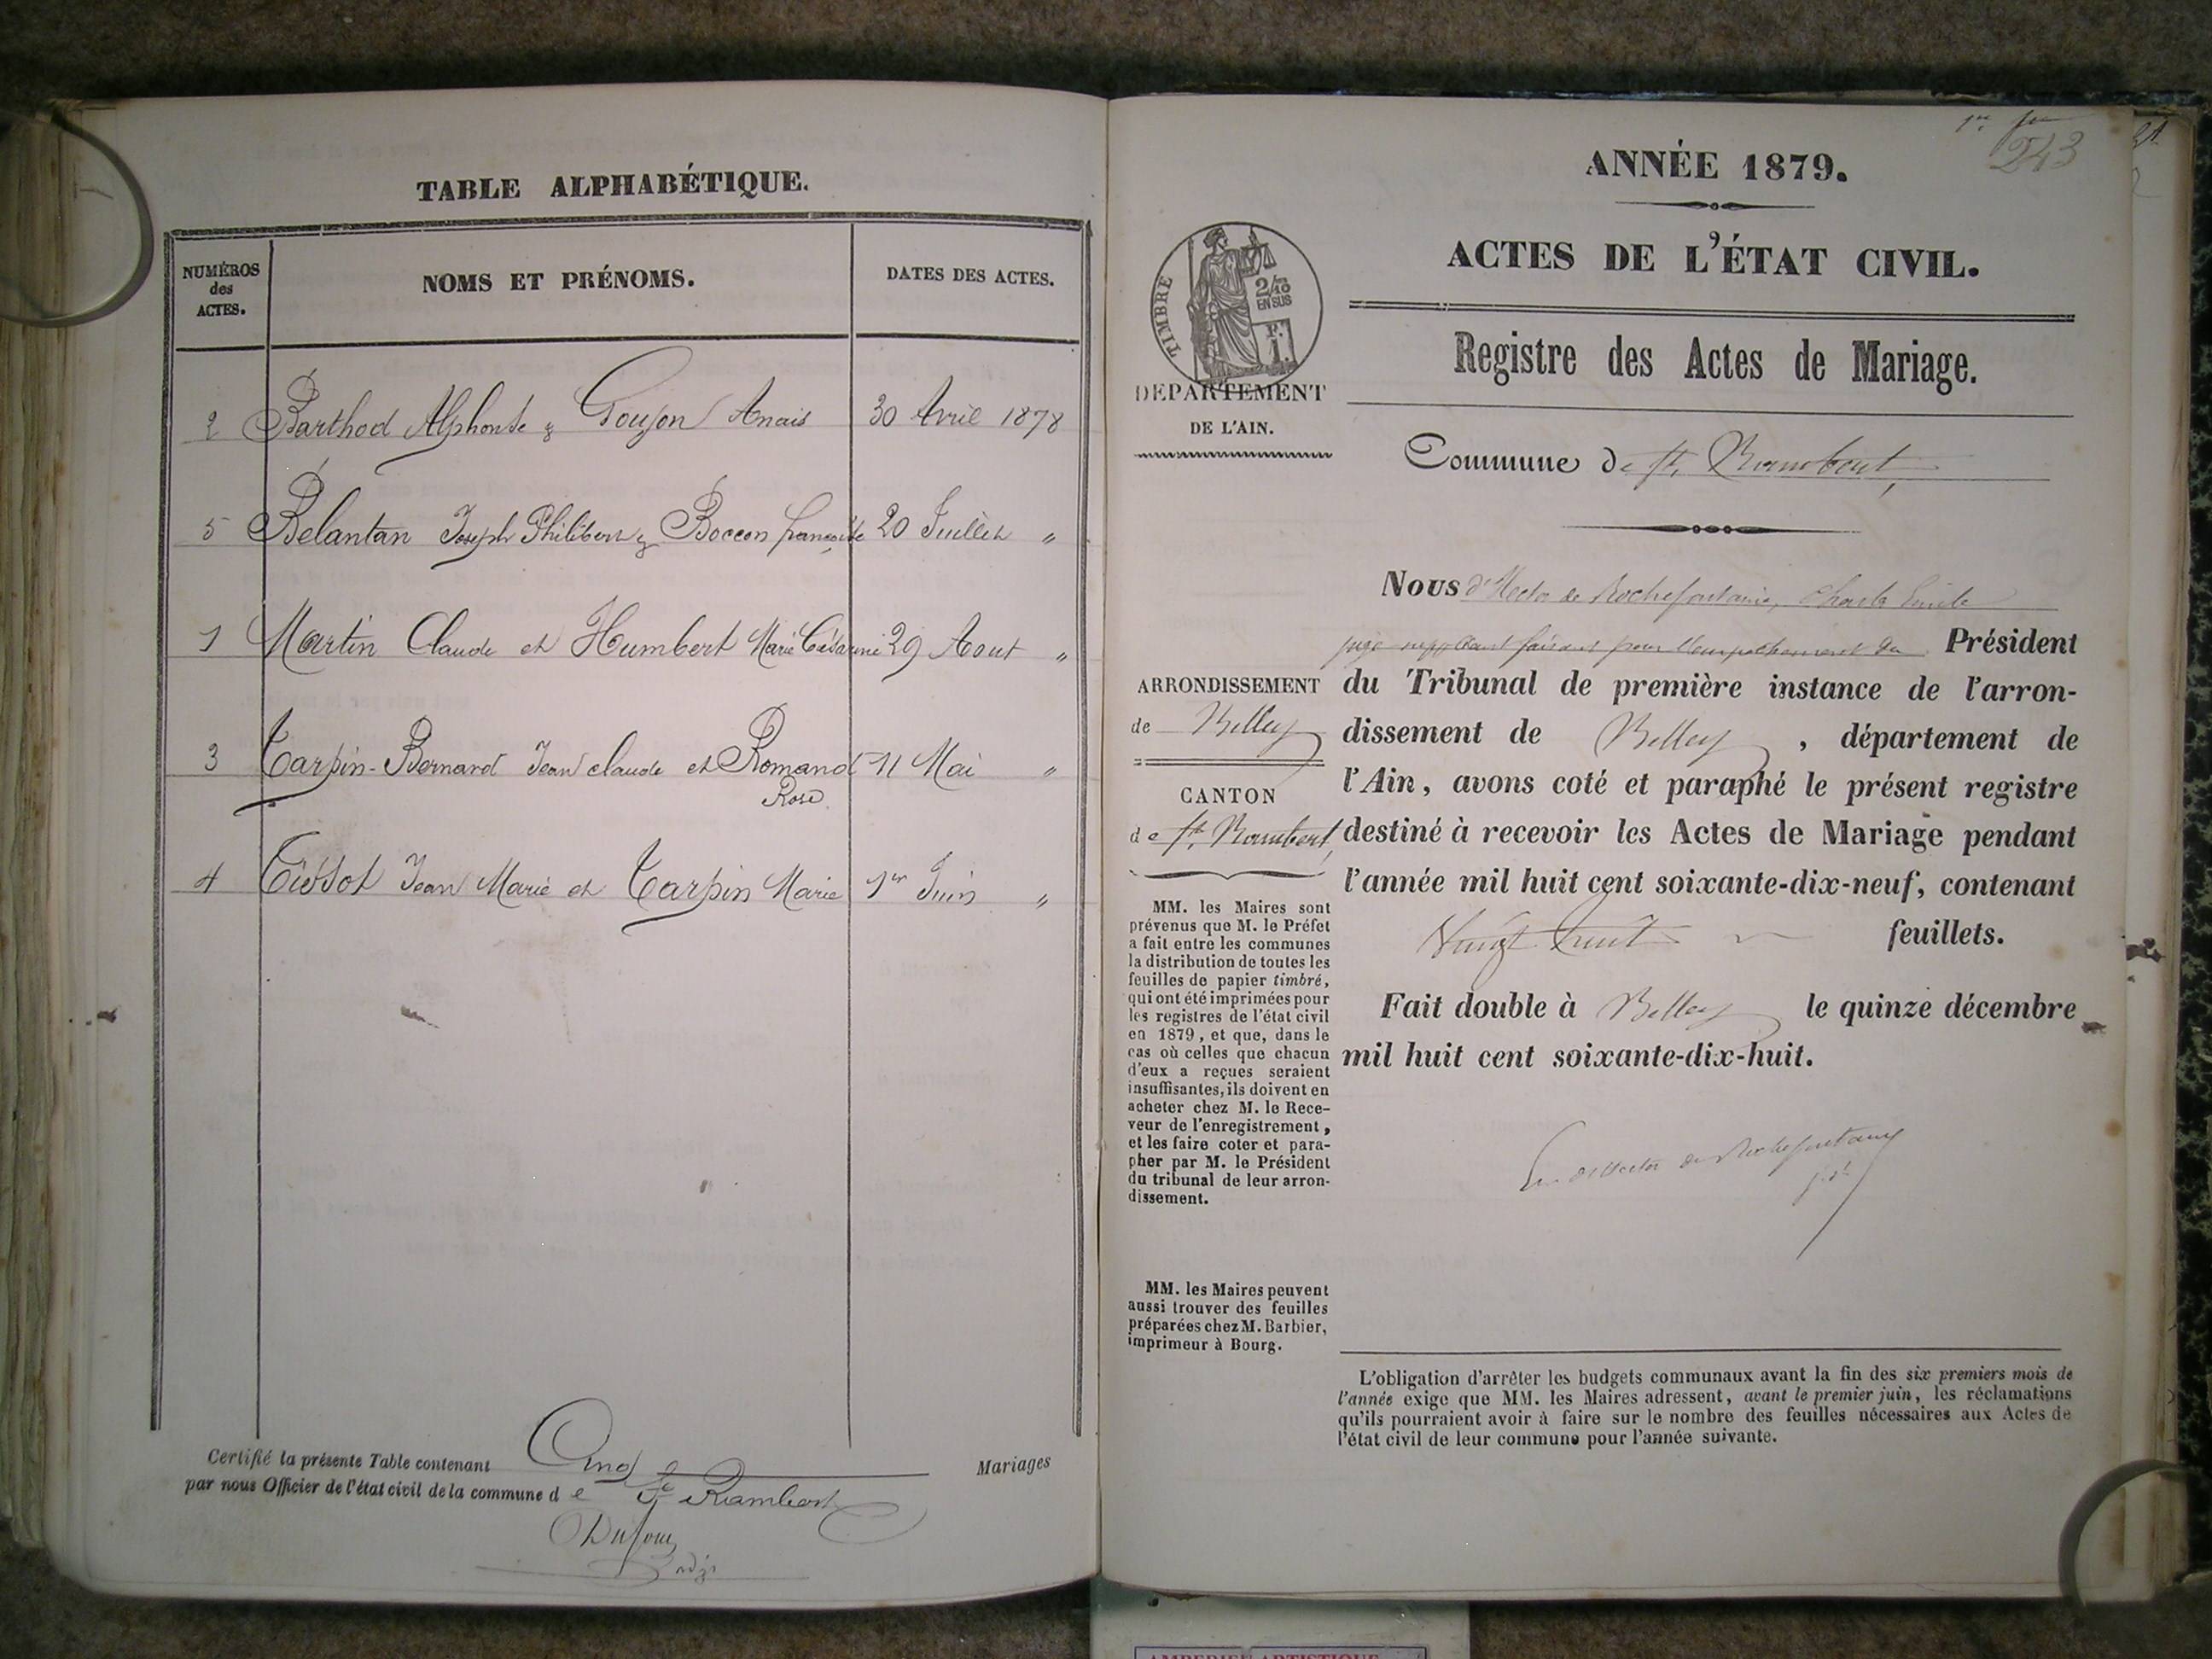 TABLE ALPHABÉTIQUE.
NUMÉROS
des
ACTES.
NOMS ET PRÉNOMS.
DATES DES ACTES.
2 Barthod Alphonse & Goujon Anais 30 Avril 1878
5 Belantan Joseph Philibert & Boccon françoise 20 Juillet "
1 Martin Claude et Humbert Marie Césarine 29 Aout "
3 Tarpin-Bernard Jean claude et Romand 11 Mai "
Rose
4 Tissot Jean Marie et Tarpin Marie 1er Juin "
Certifié la présente Table contenant Cinq Mariages
par nous Officier de l'état civil de la commune de St Rambert
Dufour
adjt
1er
243
ANNÉE 1879.
ACTES DE L'ÉTAT CIVIL.
Registre des Actes de Mariage.
TIMBRE
2/10
EN SUS
F.
1.
DÉPARTEMENT
DE L'AIN.
Commune de St. Rambert,
Nous d'Hector de Rochefontaine, Charles Emile
juge suppléant faisant pour l'empêchement du Président
du Tribunal de première instance de l'arron-
dissement de Belley, département de
l'Ain, avons coté et paraphé le présent registre
destiné à recevoir les Actes de Mariage pendant
l'année mil huit cent soixante-dix-neuf, contenant
Vingt huit feuillets.
Fait double à Belley le quinze décembre
mil huit cent soixante-dix-huit.
Em d'Hector de Rochefontaine
ARRONDISSEMENT
de Belley
CANTON
de St. Rambert,
MM. les Maires sont
prévenus que M. le Préfet
a fait entre les communes
la distribution de toutes les
feuilles de papier timbré,
qui ont été imprimées pour
les registres de l'état civil
en 1879, et que, dans le
cas où celles que chacun
d'eux a reçues seraient
insuffisantes, ils doivent en
acheter chez M. le Rece-
veur de l'enregistrement,
et les faire coter et para-
pher par M. le Président
du tribunal de leur arron-
dissement.
MM. les Maires peuvent
aussi trouver des feuilles
préparées chez M. Barbier,
imprimeur à Bourg.
L'obligation d'arrêter les budgets communaux avant la fin des six premiers mois de
l'année exige que MM. les Maires adressent, avant le premier juin, les réclamations
qu'ils pourraient avoir à faire sur le nombre des feuilles nécessaires aux Actes de
l'état civil de leur commune pour l'année suivante.
AMBERIEU ARTISTIQUE